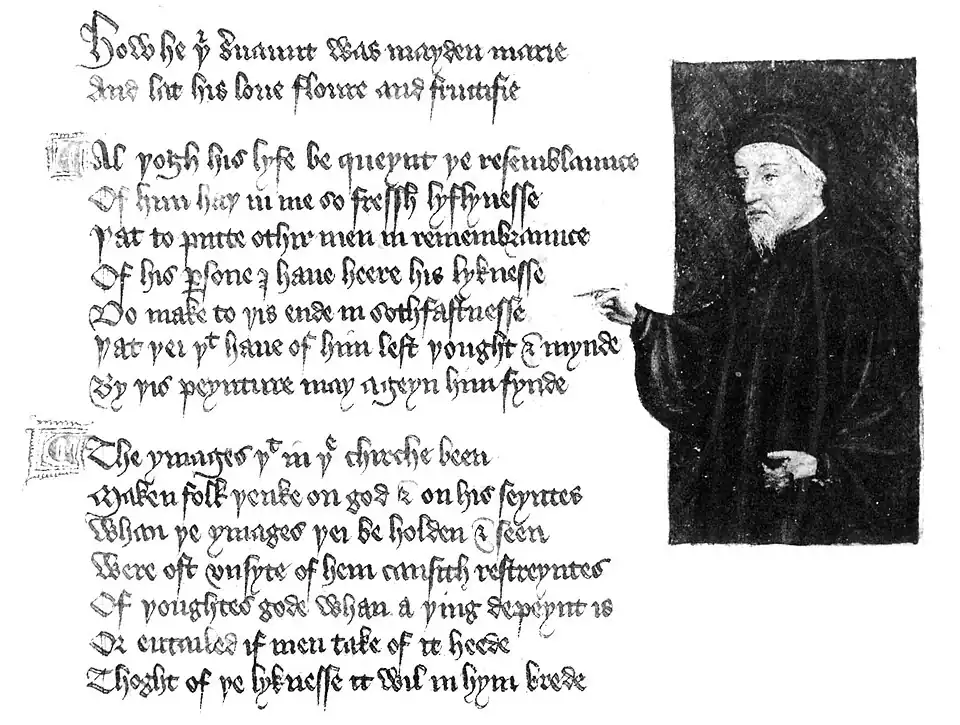 How he þͥ s̉uaunt was mayden marie
And lat his loue floure and fructifie
Al þogh his lyfe be queynt þe resemblaunce
Of him haþ in me so fressh lyflynesse
Þat to putte othir men in remembraunce
Of his ꝑsone I haue heere his lyknesse
Do make to þis ende in sothfastnesse
Þat þei þͭ haue of him left þought & mynde
By þis peynture may ageyn him fynde
The ymages þͭ in þͤ chirche been
Maken folk þenke on god & on his seyntes
Whan þe ymages þei be holden & seen
Were oft vnsyte of hem causith restreyntes
Of þoughtes gode whan a þing depeynt is
Or entailed if men take of it heede
Thoght of þe lyknesse it wil in hym brede